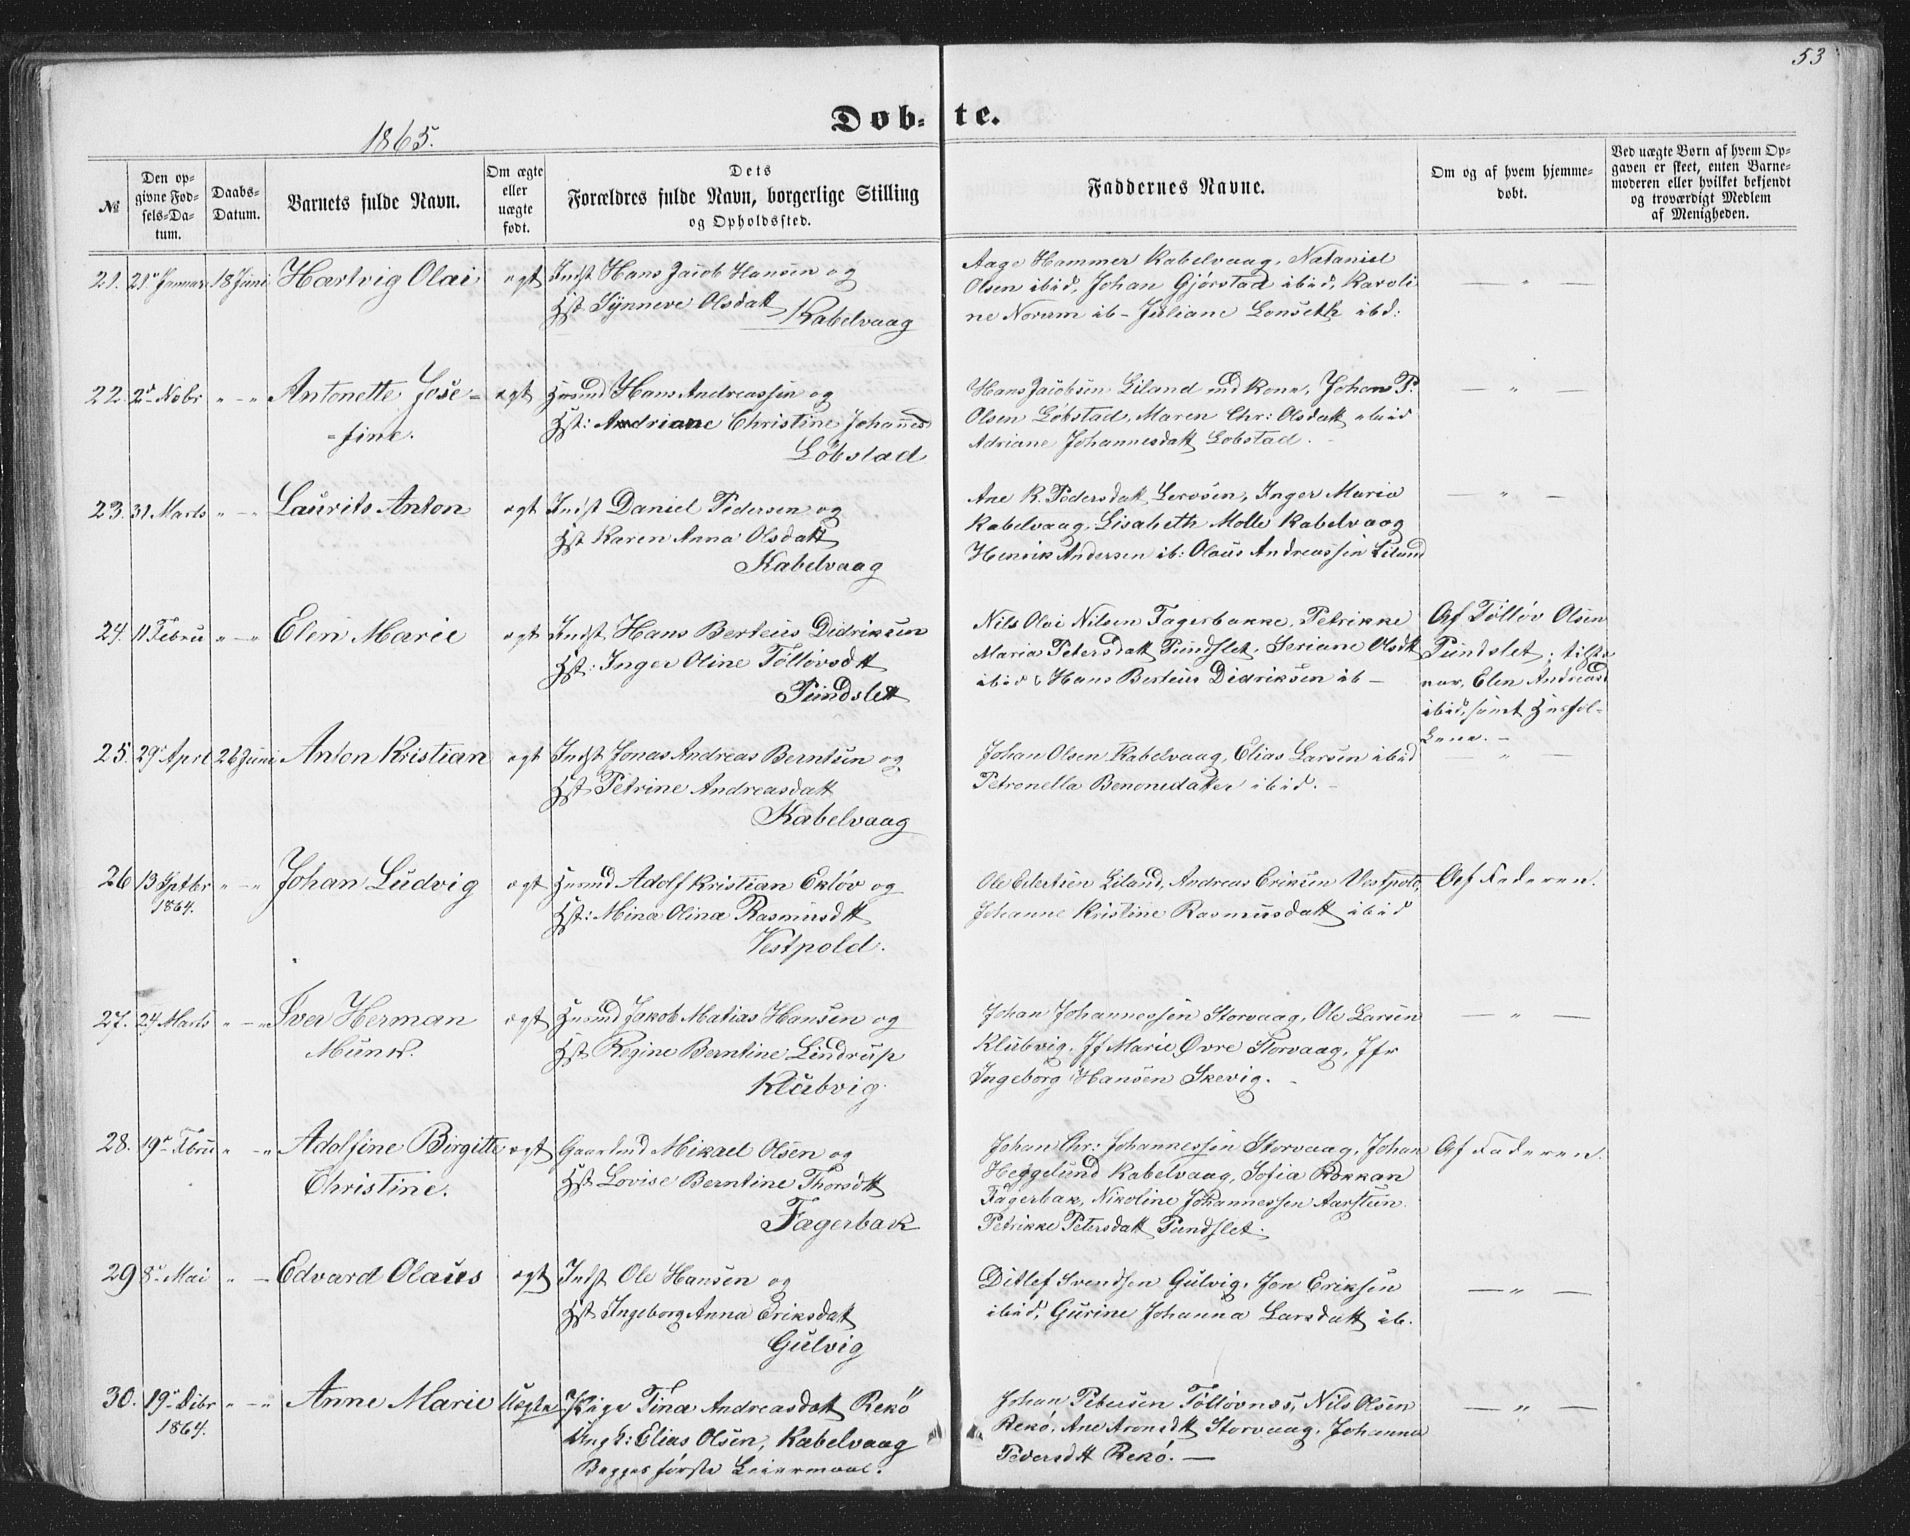 53
1865.
Døb- te.
№
Den op-
givne Fød-
sels-Da-
tum.
Daabs-
Datum.
Barnets fulde Navn.
Om ægte
eller
uægte
født.
Dets
Forældres fulde Navn, borgerlige Stilling
og Opholdssted.
Faddernes Navne.
Om og af hvem hjemme-
døbt.
Ved uægte Børn af hvem Op-
gaven er skeet, enten Barne-
moderen eller hvilket bekjendt
og troværdigt Medlem
af Menigheden.
21. 21 Januar 18 Juni Hartvig Olai ægt Indst Hans Jacob Hansen og
Hst Synneve Olsdatt
Kabelvaag
Aage Hammer Kabelvaag, Nataniel
Olsen ibid, Johan Gjørstad ibid, Karoli
ne Norum ib- Juliane Lonseth ibd:
— " —
22. 2d Nobr " — " Antonette Jose=
=fine. ægt Husmd Hans Andreassen og
Hst: Andriane Christine Johanesd
Løbstad
Hans Jacobsen Liland md Kone, Johan P.
Olsen Løbstad, Maren Chr: Olsdatt ibid
Adriane Johannesdatt Løbstad.
— " —
23. 31 Marts " — " Laurits Anton ægt Indst Daniel Pedersen og
Hst Karen Anna Olsdatt
Kabelvaag
Ane K. Pedersdatt, Inger Maria
Kabelvaag, Lisabeth Molle Kabelvaag
Henrik Andersen ib: Olaus Andreassen Liland
— " —
24. 11 Febru " — " Elen Marie ægt Indst Hans Berteus Didriksen
Hst: Inger Oline Tølløvsdtt
Pundslet
Nils Olai Nilsen Fagerbakke, Petrikke
Maria Petersdatt Pundslet, Seriane Olsdtt
ibid & Hans Berteus Didriksen ib —
Af Tølløv Olsen
Pundslet; tilste
var, Elen Andreasd
ibid, samt Husfol-
kene. —
25. 29 April 26 Juni Anton Kristian ægt Indst Jonas Andreas Berntsen og
Hst Petrine Andreasdatt
Kabelvaag
Johan Olsen Kabelvaag, Elias Larsen ibid
Petronella Benonedatter ibid. —
— " —
26 13 Sptbr
1864. " — " Johan Ludvig ægt Husmd Adolf Kristian Ekløv og
Hst: Mina Olina Rasmusdtt
Vestpold.
Ole Eilertsen Liland, Andreas Eriksen Vestpold,
Johanne Kristine Rasmusdatt ibid
Af Faderen.
27. 24 Marts " — " Iver Herman
Munch. ægt Husmd Jakob Matias Hansen og
Hst Regine Berntine Lindrup
Klubvig.
Johan Johannessen Storvaag, Ole Larsen
Klubvig, Jf Marie Øvre Storvaag, Jfr
Ingeborg Hansen Skevig. —
— " —
28. 19 Fbru " — " Adolfine Birgitte
Christine. ægt Gaardmd Mikael Olsen og
Hst Lovise Berntine Thorsdtt
Fagerbak
Johan Chr: Johannessen Storvaag, Johan
Heggelund Kabelvaag, Sofia Rokkan
Fagerbak, Nikoline Johannessen Aarsteen.
Petrikke Petersdatt Pundslet.
Af Faderen.
29 8 Mai " — Edvard Olaus ægt Indst Ole Hansen og
Hst Ingeborg Anna Eriksdatt
Gulvig
Ditlef Svendsen Gulvig, Jon Eriksen
ibid, Gurine Johanna Larsdatt ib.
— " —
30. 19 Dcbr
1864. " — " Anne Marie Uægte Pige Tina Andreasdatt Rekø
Ungk: Elias Olsen, Kabelvaag
Begges første Leiermaal.
Johan Petersen Tølløvnes, Nils Olsen
Rekø, Ane Aronsdtt Storvaag, Johanna
Pedersdtt Rekø. —
— " —